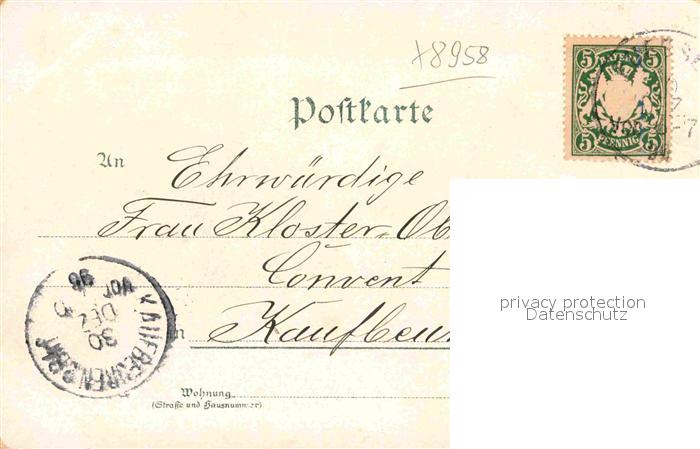 x8958
5 BAYERN 5
5 PFENNIG 5
Postkarte
An
Ehrwürdige
Frau Kloster-Ob
Convent
in Kaufbeu
KAUFBEUREN
30
DEZ
VOR
98
privacy protection
Datenschutz
Wohnung
(Straße und Hausnummer)